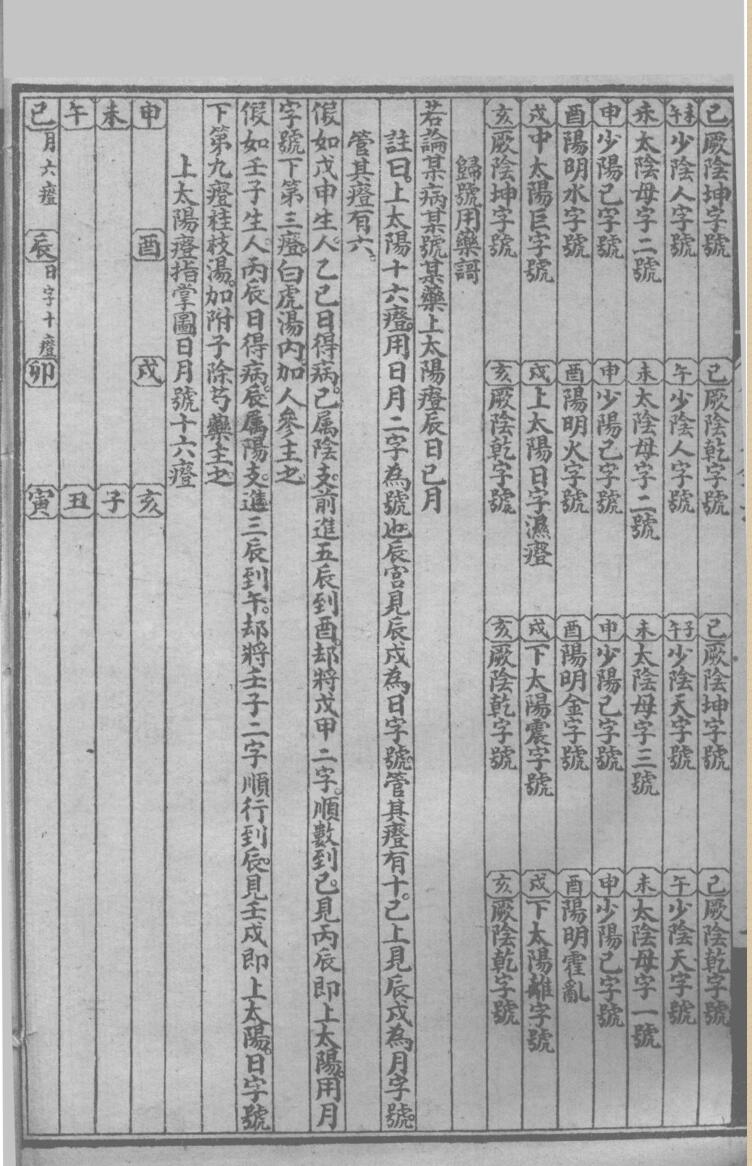 巳厥陰坤字號 巳厥陰乾字號 巳厥陰坤字號 巳厥陰乾字號
午少陰人字號 午少陰人字號 子午少陰天字號 午少陰天字號
未太陰母字二號 未太陰母字二號 未太陰母字三號 未太陰母字一號
申少陽己字號 申少陽己字號 申少陽己字號 申少陽己字號
酉陽明水字號 酉陽明火字號 酉陽明金字號 酉陽明霍亂
戌中太陽巨字號 戌上太陽日字濕癊 戌下太陽震字號 戌下太陽離字號
亥厥陰坤字號 亥厥陰乾字號 亥厥陰乾字號 亥厥陰乾字號
歸號用藥謌
若論某病某號某藥上太陽癊辰日巳月
註曰上太陽十六癊用日月二字為號也辰宮見辰戌為日字號管其癊有十巳上見辰戌為月字號
管其癊有六
假如戊申生人乙巳日得病巳属陰支前進五辰到酉却將戊甲二字順數到巳見丙辰即上太陽用月
字號下第三癊白虎湯內加人參主之
假如壬子生人丙辰日得病辰属陽支進三辰到午却將壬子二字順行到辰見壬戌即上太陽日字號
下第九癊桂枝湯加附子除芍藥主之
上太陽癊指掌圖日月號十六癊
申 酉 戌 亥
未 子
午 丑
巳月六癊 辰日字十癊 卯 寅